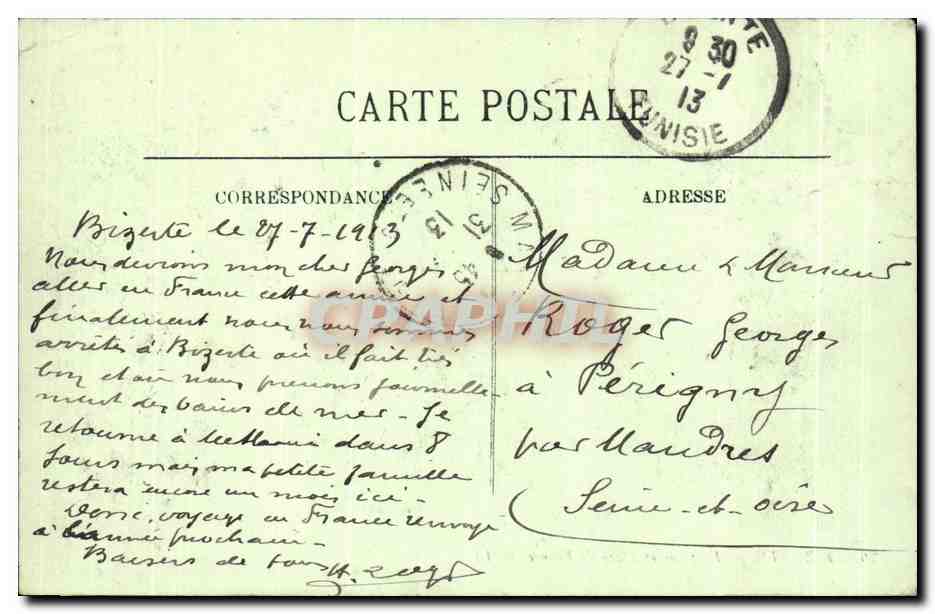 CARTE POSTALE
8 30
27 - 7
13
TUNISIE
CORRESPONDANCE
ADRESSE
SEINE
13
Bizerte le 27-7-1913
Nous devions mon cher Georges
aller en France cette année et
finalement nous nous sommes
arrêtés à Bizerte où il fait très
bon et où nous prenons journelle-
ment des bains de mer - Je
retourne à dans 8
jours mais ma petite famille
restera encore un mois ici -
Donc, voyage en France renvoyé
à l'année prochain -
Baisers de tous
H.
Madame & Monsieur
Roger Georges
à Périgny
par Mandres
Seine-et-Oise
CPAPHIL